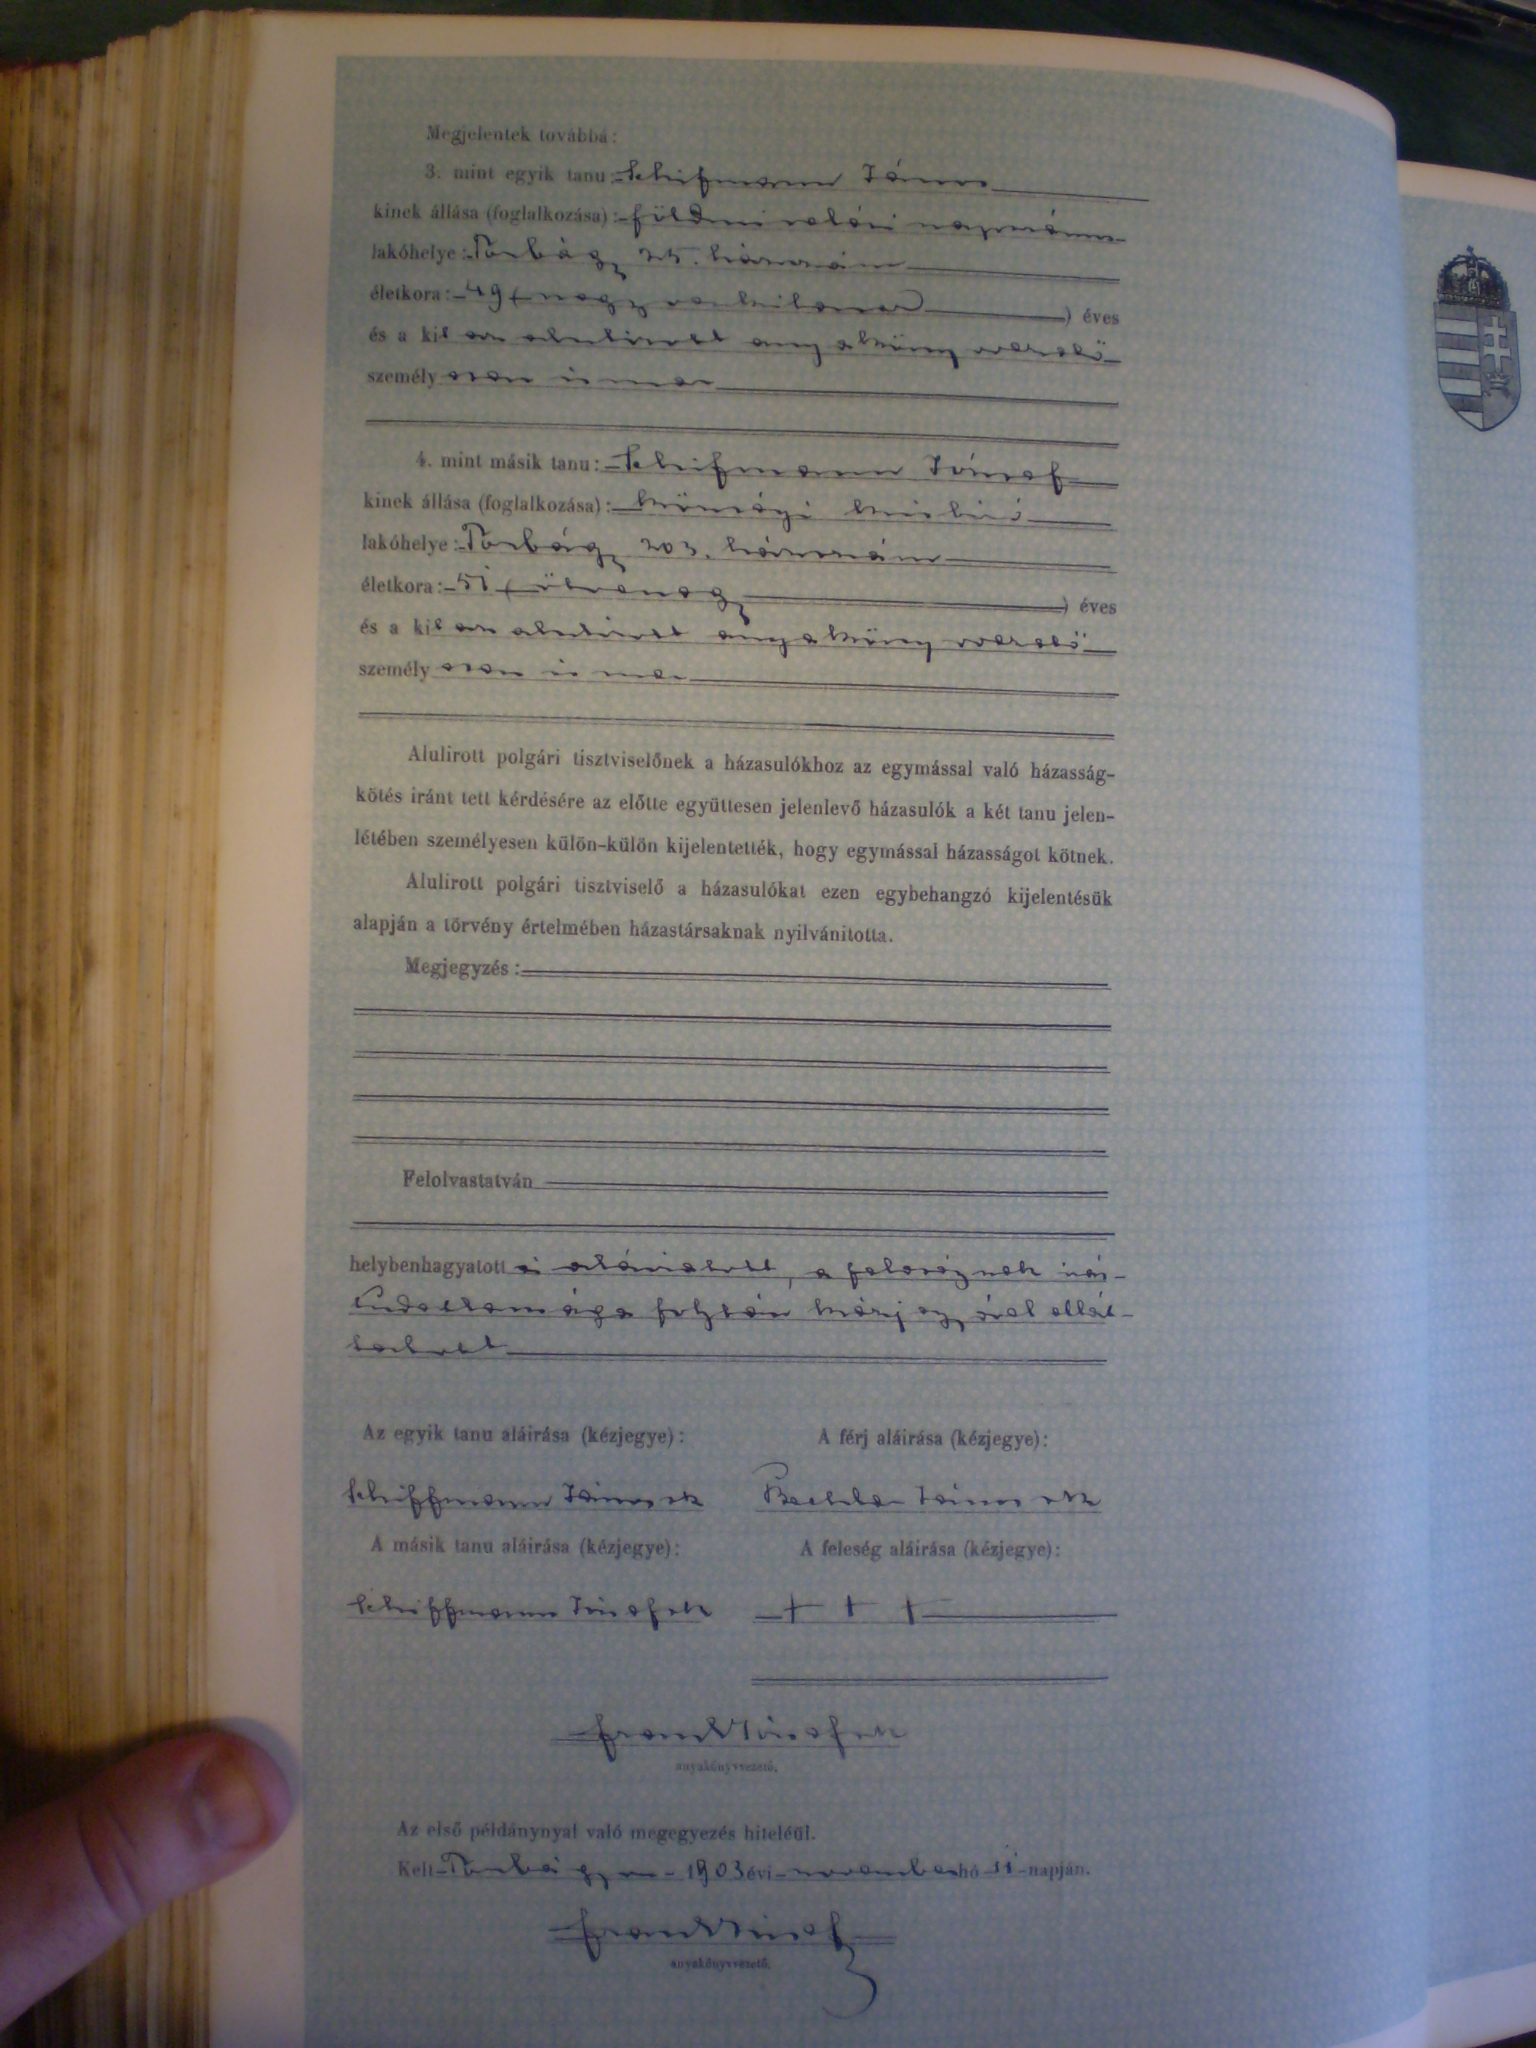 Megjelentek továbbá:
3. mint egyik tanu: Schifmann János
kinek állása (foglalkozása): földmivelési napszámos
lakóhelye: Torbágy 25. házszám
életkora: 49 (negyvenkilenc) éves
és a kit az alulirott anyakönyvvezető
személyesen ismer
4. mint másik tanu: Schifmann József
kinek állása (foglalkozása): községi kisbiró
lakóhelye: Torbágy 203. házszám
életkora: 51 (ötvenegy) éves
és a kit az alulirott anyakönyvvezető
személyesen ismer
Alulirott polgári tisztviselőnek a házasulókhoz az egymással való házasság-
kötés iránt tett kérdésére az előtte együttesen jelenlevő házasulók a két tanu jelen-
létében személyesen külön-külön kijelentették, hogy egymással házasságot kötnek.
Alulirott polgári tisztviselő a házasulókat ezen egybehangzó kijelentésük
alapján a törvény értelmében házastársaknak nyilvánitotta.
Megjegyzés:
Felolvastatván
helybenhagyatott és aláiratott, a feleségnek irás-
tudatlansága folytán kézjegyével ellát-
tatott
Az egyik tanu aláirása (kézjegye): A férj aláirása (kézjegye):
Schiffmann János sk János sk
A másik tanu aláirása (kézjegye): A feleség aláirása (kézjegye):
Schiffmann József sk + + +
Frank József sk
anyakönyvvezető.
Az első példánynyal való megegyezés hiteléül.
Kelt Torbágyon 1903 évi november hó 11 napján.
Frank József
anyakönyvvezető.